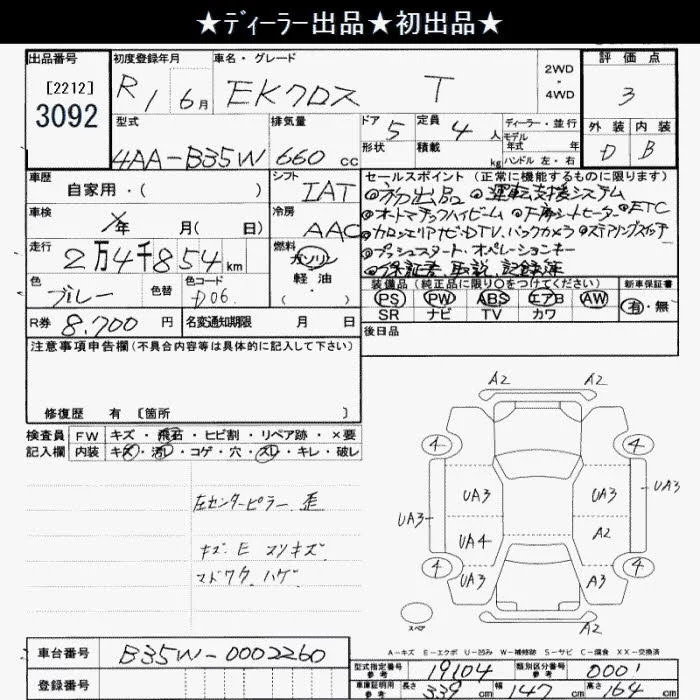 ★ディーラー出品★初出品★
出品番号 初度登録年月 車名・グレード 評価点
[2212] R1 6月 EKクロス T 2WD・4WD 3
3092
型式 排気量 ドア 定員 ディーラー・並行 外装 内装
4AA-B35W 660cc 5 4人 モデル年式 年式 D B
形状 積載 kg ハンドル 左・右
車歴 シフト セールスポイント(正常に機能するものに限ります)
自家用・( ) IAT ◎初出品 ◎運転支援システム
車検 冷房 ◎オートマチックハイビーム ◎下席シートヒーター ◎ETC
年 月( 日) AAC ◎カロッツェリアナビ・DTV、バックカメラ ◎ステアリングスイッチ
走行 燃料 ◎プッシュスタート・オペレーションキー
2万4千854km ガソリン ◎保証書、取説、記録簿
軽油・( )
色 色替 色コード 装備品(純正品に限り〇をつけてください) 新車保証書
ブルー D06 PS PW ABS エアB AW 有・無
SR ナビ TV カワ
R券 8,700円 名変通知期限 月 日 後日品
注意事項申告欄(不具合内容等は具体的に記入して下さい)
修復歴 有 [箇所 ]
検査員 FW キズ・飛石・ヒビ割・リペア跡・×要
記入欄 内装 キズ・汚レ・コゲ・穴・スレ・キレ・破レ
左センターピラー 歪
キズ E スリキズ
マドワク ハゲ
A2 A2
4 4
UA3 UA3 UA3
UA3 UA4 A2
4 4
UA3 A3
スペア A2
A-キズ E-エクボ U-凹み W-補修跡 S-サビ C-腐食 XX-交換済
車台番号 B35W-0002260
登録番号
型式指定番号 参考 19104 類別区分番号 参考 0001
車庫証明用 参考 長さ 339cm 幅 147cm 高さ 164cm